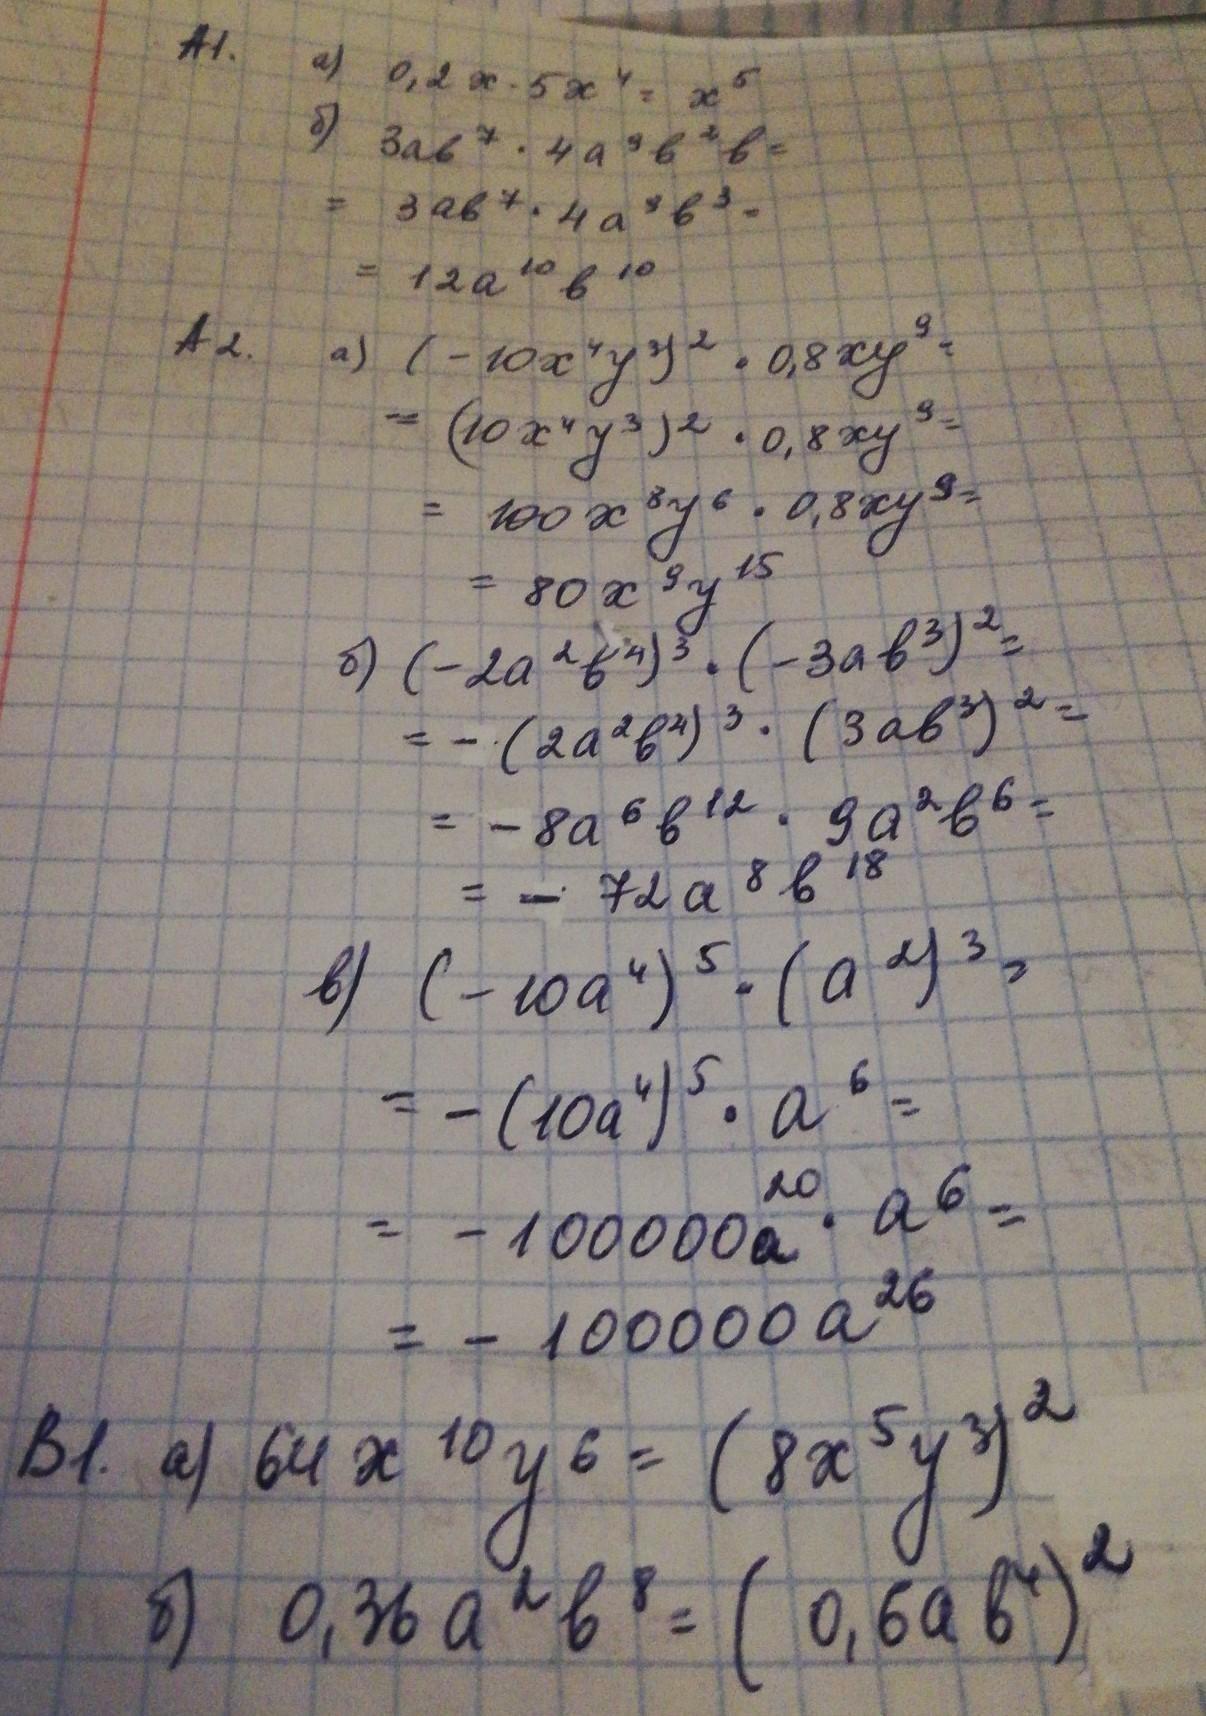 А1. а) 0,2x · 5x⁴ = x⁵
б) 3ab⁷ · 4a⁹b²b =
= 3ab⁷ · 4a⁹b³ =
= 12a¹⁰b¹⁰
А2. а) (-10x⁴y³)² · 0,8xy⁹ =
= (10x⁴y³)² · 0,8xy⁹ =
= 100x⁸y⁶ · 0,8xy⁹ =
= 80x⁹y¹⁵
б) (-2a²b⁴)³ · (-3ab³)² =
= -(2a²b⁴)³ · (3ab³)² =
= -8a⁶b¹² · 9a²b⁶ =
= -72a⁸b¹⁸
в) (-10a⁴)⁵ · (a²)³ =
= -(10a⁴)⁵ · a⁶ =
= -100000a²⁰ · a⁶ =
= -100000a²⁶
В1. а) 64x¹⁰y⁶ = (8x⁵y³)²
б) 0,36a²b⁸ = (0,6ab⁴)²